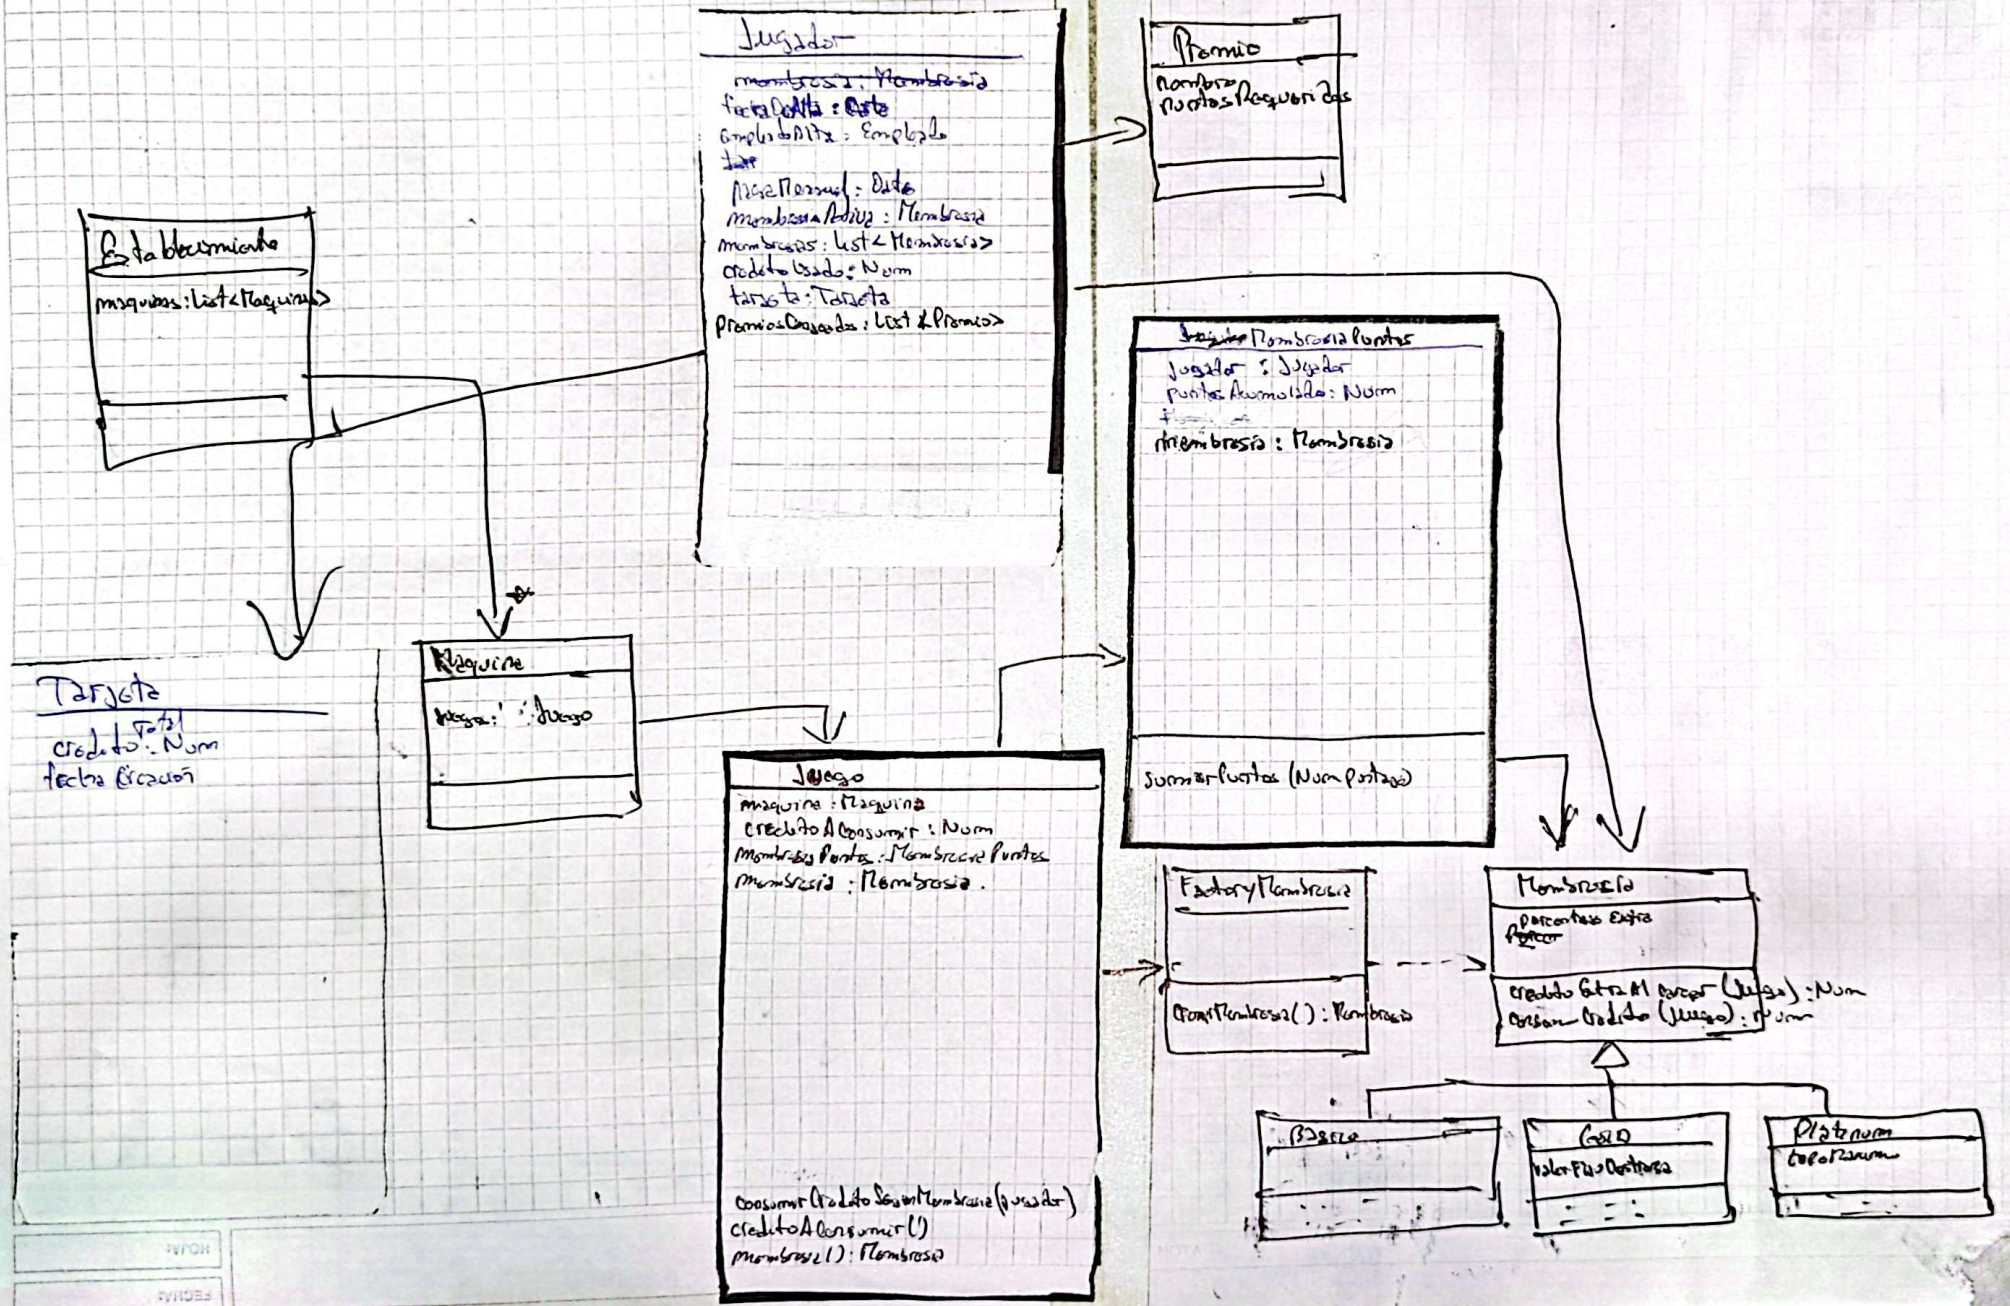 Jugador
membresia: Membresia
fechaDeAlta: Date
empleadoAlta: Empleado
pagoMensual: Date
membresiaActiva: Membresia
membresias: List<Membresia>
creditoUsado: Num
tarjeta: Tarjeta
premiosCanjeados: List<Premio>
Premio
nombre
puntosRequeridos
Establecimiento
maquinas: List<Maquinas>
MembresiaPuntos
jugador: Jugador
puntosAcumulado: Num
membresia: Membresia
sumarPuntos (Num puntaje)
Tarjeta
creditoTotal: Num
fecha Creación
Maquina
Juego: Juego
Juego
maquina: Maquina
creditoAConsumir: Num
membresiaPuntos: MembresiaPuntos
membresia: Membresia.
consumirCreditoSegunMembresia(jugador)
creditoAConsumir()
membresia(): Membresia
FactoryMembresia
crearMembresia(): Membresia
Membresía
porcentaje Extra
credito Extra Al cargar (Juego): Num
consumirCredito (Juego): Num
Basico
Gold
valorFijoDe
Platinum
topeMaximo
HOJA:
FECHA: